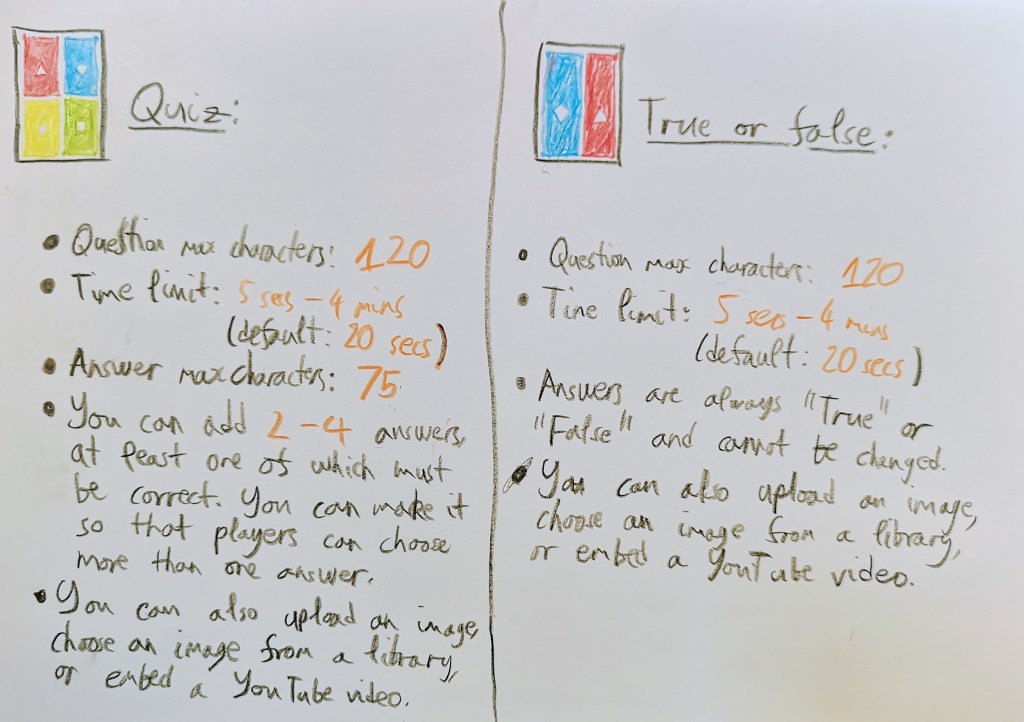 Quiz:
• Question max characters: 120
• Time limit: 5 secs – 4 mins
(default: 20 secs)
• Answer max characters: 75
• You can add 2 – 4 answers,
at least one of which must
be correct. You can make it
so that players can choose
more than one answer.
• You can also upload an image,
choose an image from a library,
or embed a YouTube video.
True or false:
• Question max characters: 120
• Time limit: 5 secs – 4 mins
(default: 20 secs)
• Answers are always "True" or
"False" and cannot be changed.
• You can also upload an image,
choose an image from a library,
or embed a YouTube video.